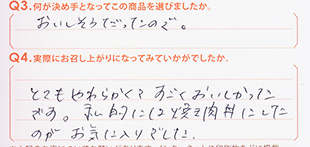 Q3.何が決め手となってこの商品を選びましたか。
おいしそうだったので。
Q4.実際にお召し上がりになってみていかがでしたか。
とてもやわらかくて すごくおいしかった
です。私的には焼き肉丼にした
のが お気に入りでした。